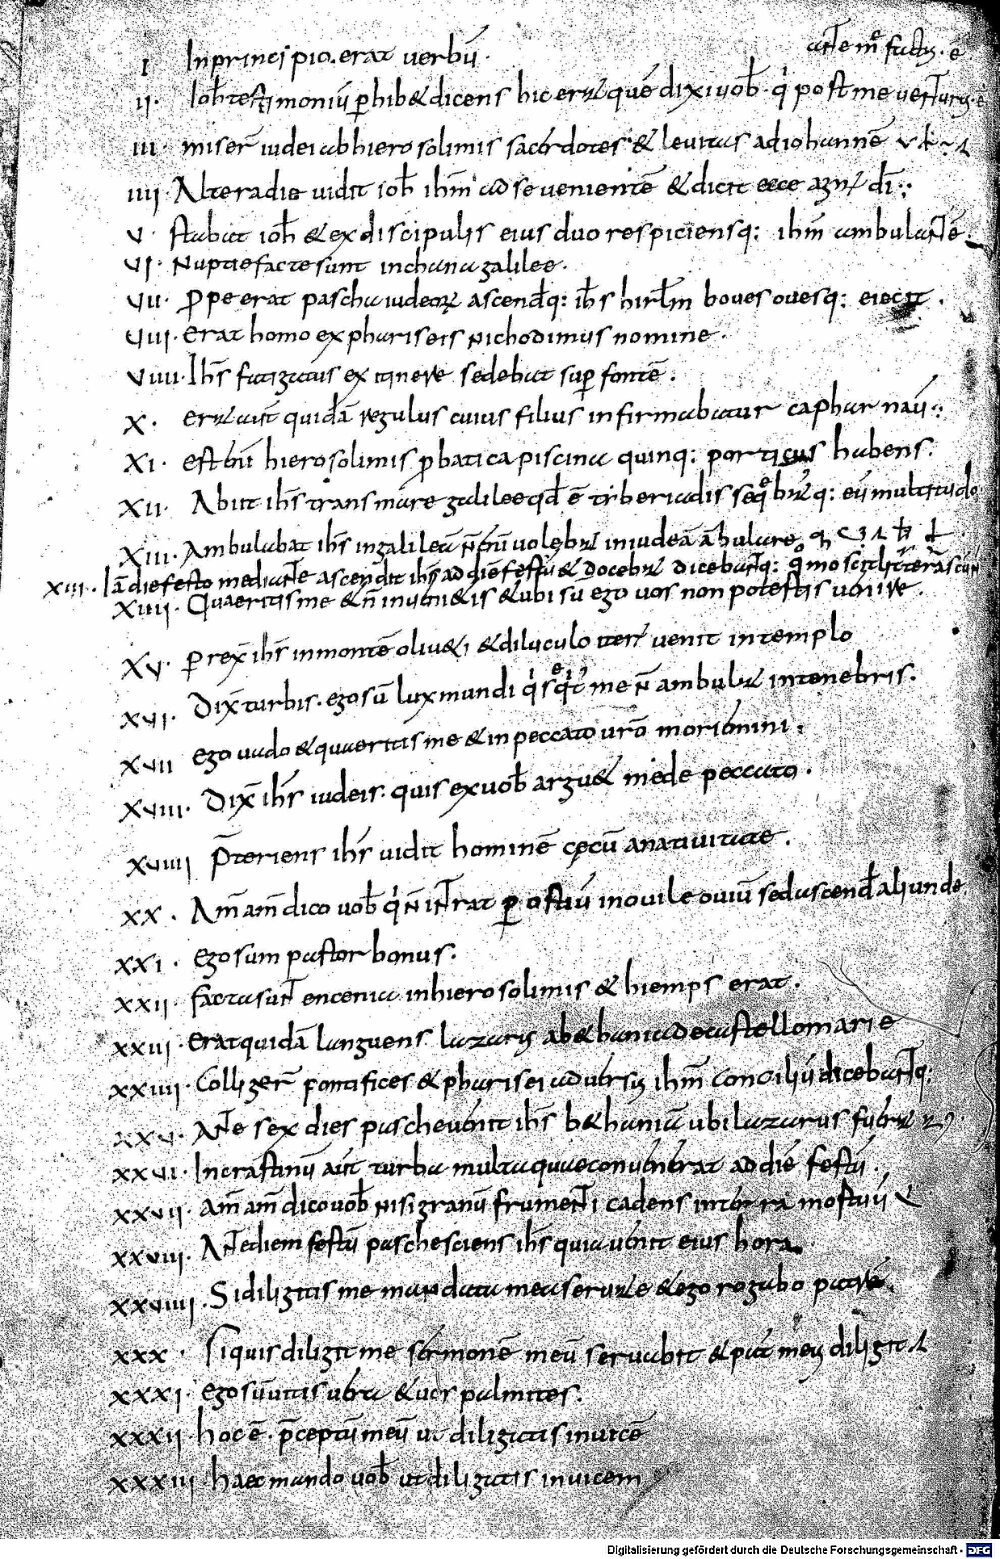 ante me fact᷒ · ē
I In principio. erat verbū ·
II · Ioh̄ testimoniū ꝑhib& dicens hic erat quē dixi vob̄ · q' post me venturus · ē
III miser̄ iudei ab hierosolimis sacerdotes & levitas ad iohannē
IIII · Altera die vidit ioh̄ ihm̄ ad se venientē & dicit ecce agn dī
V · stabat ioh̄ & ex discipulis eius duo respiciensq: ihm̄ ambulantē ·
VI · Nuptie facte sunt in chana galilee ·
VII · ꝓpe erat pascha iudeoꝝ ascendq: ihs̄ hirlm̄ boves ovesq: eiecit ·
VIII · erat homo ex phariseis nichodimus nomine ·
VIIII · Ihs̄ fatigatus ex itinere sedebat suꝑ fontē ·
X · erat aut̄ quidā regulus cuius filius infirmabatur capharnaū ·:
XI · est aut̄ hierosolimis ꝓbatica piscina quinq: porticus habens ·
XII · Abiit ihs̄ trans mare galilee qd̄ ē tiberiadis seq̄batur q: eū multitudo
XIII · Ambulabat ihs̄ in galileā n̄ enī volebat in iudeā ābulare
XIII · Iā die festo mediante ascendit ihs̄ ad diē festū & docebat dicebantq:
XIIII · Quaeritis me & n̄ inveni&is & ubi sū ego vos non potestis venire ·
XV · ꝑrex̄ ihs̄ in montē oliu&i & diluculo iter̄ venit in templo
XVI · Dix̄ turbis · ego sū lux mundi q' seq't me n̄ ambulat in tenebris ·
XVII ego vado & quaeritis me & in peccato vr̄o moriemini ·
XVIII · Dix̄ ihs̄ iudeis · quis ex vob̄ argu& me de peccato ·
XVIIII p̄teriens ihs̄ vidit hominē cęcū a nativitate ·
XX · Am̄ am̄ dico vob̄ q' n̄ intrat ꝑ ostiū in ovile oviū sed ascend̄ aliunde
XXI · ego sum pastor bonus ·
XXII · facta sunt encenia in hierosolimis & hiemps erat ·
XXIII · erat quidā languens lazarus a b&hania de castello marie
XXIIII · Colliger̄ pontifices & pharisei adversus ihm̄ conciliū dicebantq:
XXV · Ante sex dies pasche venit ihs̄ b&haniā ubi lazarus fuerat
XXVI · In crastinū aut̄ turba multa quae convenerat ad diē festū ·
XXVII · am̄ am̄ dico vob̄ nisi granū frumenti cadens in terra mortuū
XXVIII · Ante diem festū pasche sciens ihs̄ quia venit eius hora
XXVIIII · Si diligitis me mandata mea servate & ego rogabo patrē ·
XXX · Si quis diligit me sermonē meū servabit & pat̄ meus diligit
XXXI · ego sū vitis vera & vos palmites ·
XXXII · hoc ē · p̄ceptū meū ut diligatis invicē
XXXIII · haec mando vob̄ ut diligatis invicem
Digitalisierung gefördert durch die Deutsche Forschungsgemeinschaft · DFG